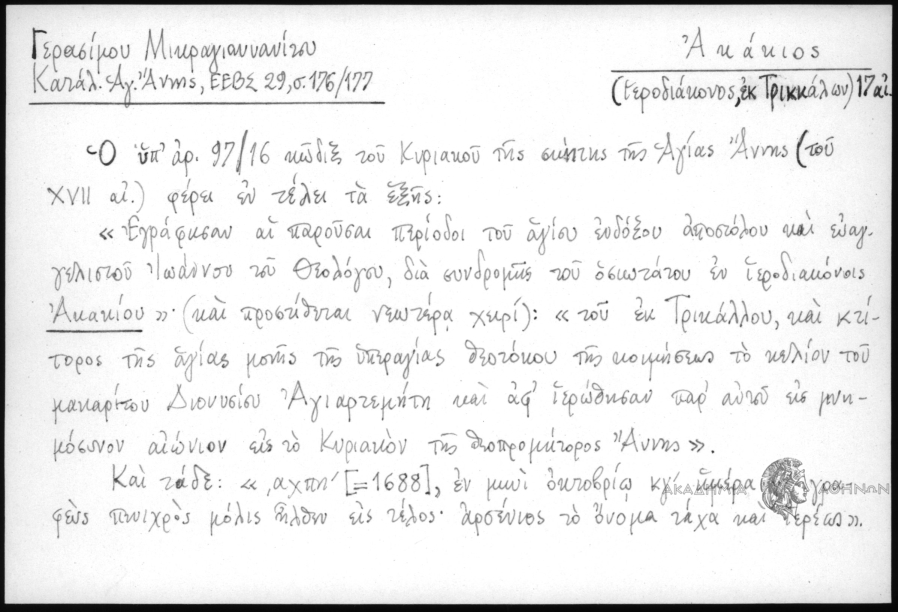 Γερασίμου Μικραγιαννανίτου
Κατάλ. Ἁγ. Ἄννης, ΕΕΒΣ 29, σ. 176/177
Ἀκάκιος
(ἱεροδιάκονος, ἐκ Τρικκάλων) 17 αἰ.
Ὁ ὑπ' ἀρ. 97/16 κῶδιξ τοῦ Κυριακοῦ τῆς σκήτης τῆς Ἁγίας Ἄννης (τοῦ
XVII αἰ.) φέρει ἐν τέλει τὰ ἑξῆς:
« Ἐγράφησαν αἱ παροῦσαι περίοδοι τοῦ ἁγίου ἐνδόξου ἀποστόλου καὶ εὐαγ-
γελιστοῦ Ἰωάννου τοῦ Θεολόγου, διὰ συνδρομῆς τοῦ ὁσιωτάτου ἐν ἱεροδιακόνοις
Ἀκακίου » · (καὶ προστίθεται νεωτέρᾳ χειρί): « τοῦ ἐκ Τρικάλλου, καὶ κτί-
τορος τῆς ἁγίας μονῆς τῆς ὑπεραγίας θεοτόκου τῆς κοιμήσεως τὸ κελίον τοῦ
μακαρίτου Διονυσίου Ἁγιαρτεμήτη καὶ ἀφ' ἱερώθησαν παρ' αὐτοῦ εἰς μνη-
μόσωνον αἰώνιον εἰς τὸ Κυριακὸν τῆς θεοπρομήτορος Ἄννης ».
Καὶ τάδε: « ͵αχπη' [= 1688], ἐν μηνὶ ὀκτοβρίῳ κγ' ἡμέρα γρα-
φεὺς πενιχρὸς μόλις ἦλθεν εἰς τέλος· ἀρσένιος τὸ ὄνομα τάχα καὶ ἱερέως ».
ΑΚΑΔΗΜΙΑ ΑΘΗΝΩΝ